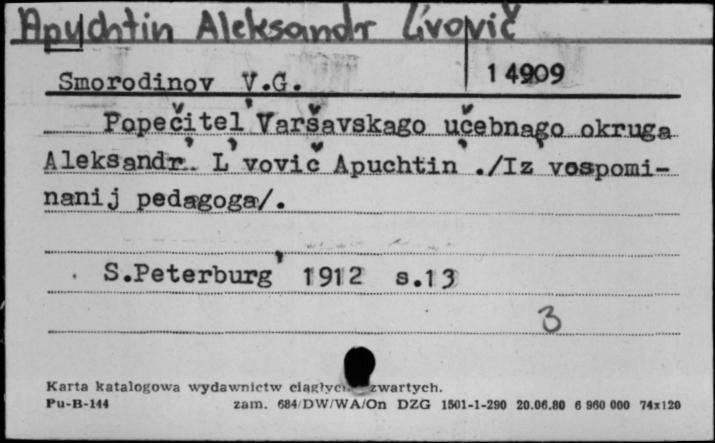 Apuchtin Aleksandr L'vovič
Smorodinov V.G. 14909
Popečitel' Varšavskago učebnago okruga
Aleksandr' L'vovič Apuchtin'./Iz vospomi-
nanij pedagoga/.
S.Peterburg' 1912 s.13
3
Karta katalogowa wydawnictw ciągłych zwartych.
Pu-B-144 zam. 684/DW/WA/On DZG 1501-1-290 20.06.80 6 960 000 74x120